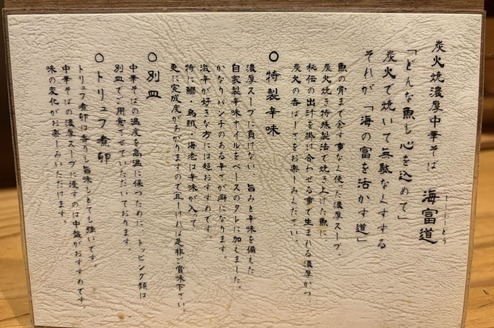 炭火焼濃厚中華そば 海富道
しーふーどう
「どんな魚も心を込めて」
炭火で焼いて無駄なくすする
それが「海の富を活かす道」
魚の骨まで余す事なく使った濃厚スープ。
炭火焼き特殊製法で焼き上げた魚に
秘伝の出汁を掛け合わせる事で生まれる濃厚かつ
炭火の香ばしさをお楽しみください。
○特製辛味
濃厚スープに負けない、旨みと辛味を備えた
自家製辛味オイルをベースのタレに加えました。
かなりパンチのある辛さが癖になります。
激辛が好きな方には超おすすめです。
特に鯛・烏賊・海老は辛味が入って
更に完成度があがりますので宜しければ是非ご賞味下さい。
○別皿
中華そばの温度を高温に保つために、トッピング類は
別皿でご用意させていただいております。
○トリュフ煮卵
トリュフ煮卵は香りも旨味もとても強いです。
中華そばの濃厚スープに浸すのは中盤がおすすめです。
味の変化がお楽しみいただけます。